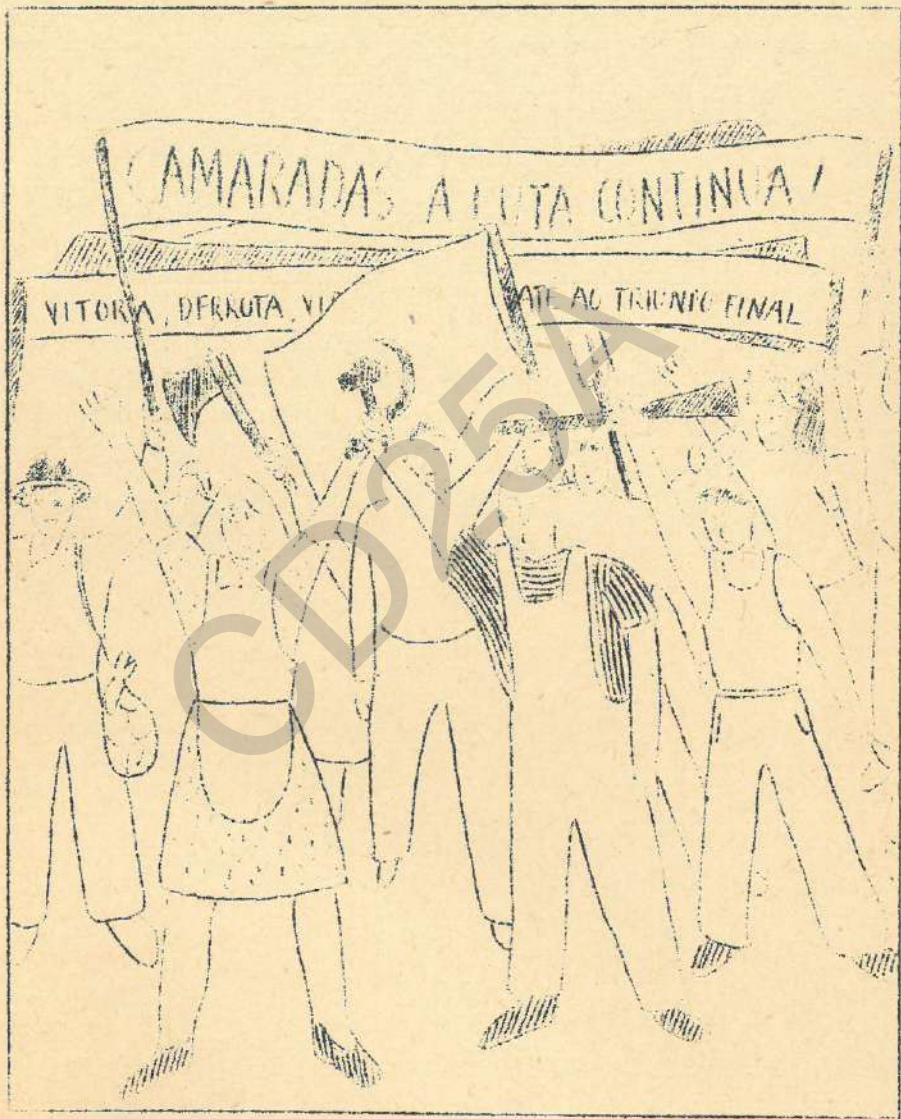 CAMARADAS A LUTA CONTINUA!
VITORIA, DERROTA, ATE AO TRIUNFO FINAL
CD25A